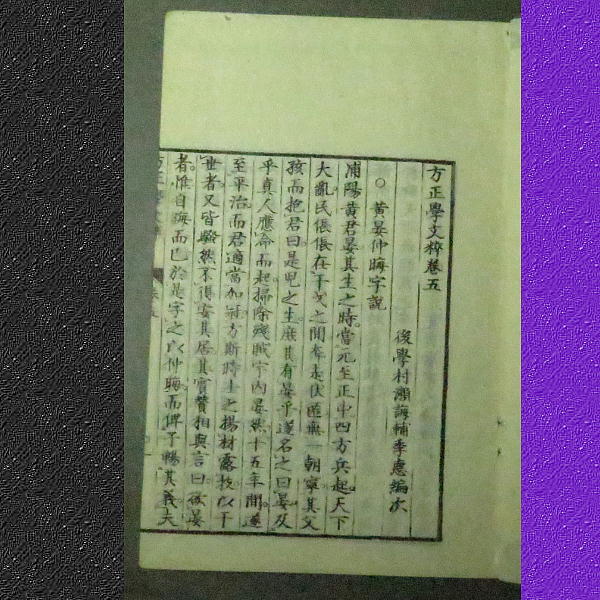 方正學文粹卷五
後學村瀨誨輔季應編次
○黃晏仲晦字說
浦陽黃君晏其生之時當元至正中四方兵起天下
大亂民倀倀在干戈之間奔走伏匿無一朝寧其父
孩而抱君曰是兒之生庶其有晏乎遂名之曰晏及
乎真人應命而起掃除殘賊宇內晏然十五年間遂
至平治而君適當加冠方斯時士之揚材露技以干
世者又皆騷然不得安其居其賓贊相與言曰欲晏
者惟自晦而已於是字之以仲晦而俾予暢其義夫